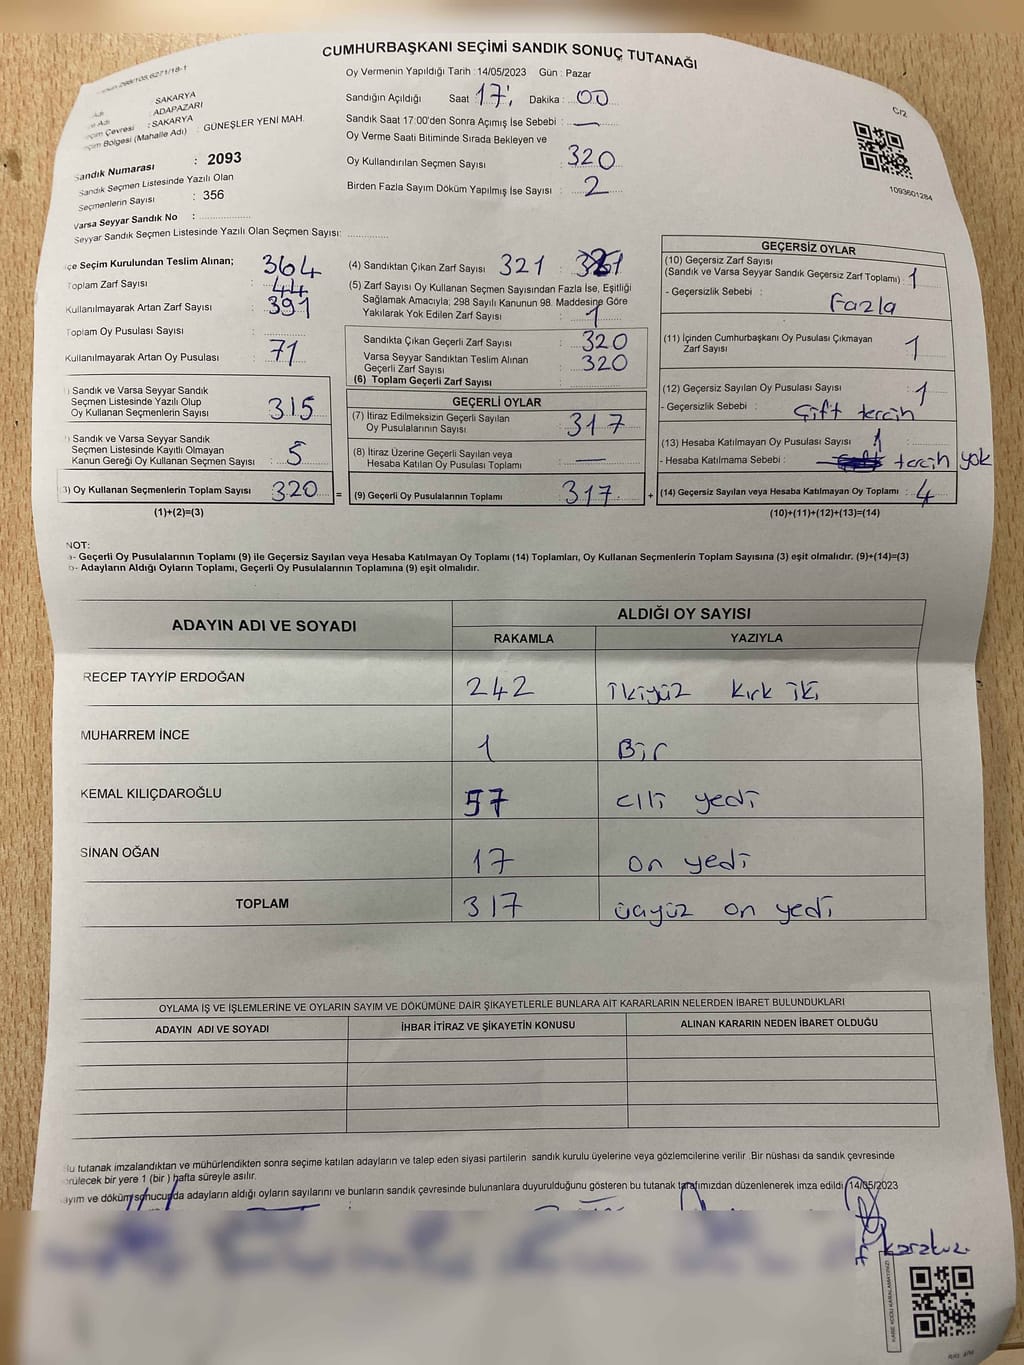 CUMHURBAŞKANI SEÇİMİ SANDIK SONUÇ TUTANAĞI
Oy Vermenin Yapıldığı Tarih : 14/05/2023 Gün : Pazar
SAKARYA
ADAPAZARI
Çevresi : SAKARYA
Bölgesi (Mahalle Adı) : GÜNEŞLER YENİ MAH.
Sandık Numarası : 2093
Sandık Seçmen Listesinde Yazılı Olan
Seçmenlerin Sayısı : 356
Varsa Seyyar Sandık No :
Seyyar Sandık Seçmen Listesinde Yazılı Olan Seçmen Sayısı:
Sandığın Açıldığı Saat 17: Dakika : 00
Sandık Saat 17:00'den Sonra Açımış İse Sebebi : —
Oy Verme Saati Bitiminde Sırada Bekleyen ve
Oy Kullandırılan Seçmen Sayısı : 320
Birden Fazla Sayım Döküm Yapılmış İse Sayısı : 2
C/2
1093601284
Seçim Kurulundan Teslim Alınan;
Toplam Zarf Sayısı : 364
Kullanılmayarak Artan Zarf Sayısı : 44
Toplam Oy Pusulası Sayısı : 391
Kullanılmayarak Artan Oy Pusulası : 71
Sandık ve Varsa Seyyar Sandık
Seçmen Listesinde Yazılı Olup
Oy Kullanan Seçmenlerin Sayısı : 315
Sandık ve Varsa Seyyar Sandık
Seçmen Listesinde Kayıtlı Olmayan
Kanun Gereği Oy Kullanan Seçmen Sayısı : 5
3) Oy Kullanan Seçmenlerin Toplam Sayısı : 320 =
(1)+(2)=(3)
(4) Sandıktan Çıkan Zarf Sayısı 321 :
(5) Zarf Sayısı Oy Kullanan Seçmen Sayısından Fazla İse, Eşitliği
Sağlamak Amacıyla; 298 Sayılı Kanunun 98. Maddesine Göre
Yakılarak Yok Edilen Zarf Sayısı : 1
Sandıkta Çıkan Geçerli Zarf Sayısı : 320
Varsa Seyyar Sandıktan Teslim Alınan
Geçerli Zarf Sayısı : 320
(6) Toplam Geçerli Zarf Sayısı :
GEÇERLİ OYLAR
(7) İtiraz Edilmeksizin Geçerli Sayılan
Oy Pusulalarının Sayısı : 317
(8) İtiraz Üzerine Geçerli Sayılan veya
Hesaba Katılan Oy Pusulası Toplamı : —
(9) Geçerli Oy Pusulalarının Toplamı : 317 +
GEÇERSİZ OYLAR
(10) Geçersiz Zarf Sayısı
(Sandık ve Varsa Seyyar Sandık Geçersiz Zarf Toplamı) : 1
- Geçersizlik Sebebi : fazla
(11) İçinden Cumhurbaşkanı Oy Pusulası Çıkmayan
Zarf Sayısı : 1
(12) Geçersiz Sayılan Oy Pusulası Sayısı : 1
- Geçersizlik Sebebi : Çift tercih
(13) Hesaba Katılmayan Oy Pusulası Sayısı : 1
- Hesaba Katılmama Sebebi : tercih yok
(14) Geçersiz Sayılan veya Hesaba Katılmayan Oy Toplamı : 4
(10)+(11)+(12)+(13)=(14)
NOT:
a- Geçerli Oy Pusulalarının Toplamı (9) ile Geçersiz Sayılan veya Hesaba Katılmayan Oy Toplamı (14) Toplamları, Oy Kullanan Seçmenlerin Toplam Sayısına (3) eşit olmalıdır. (9)+(14)=(3)
b- Adayların Aldığı Oyların Toplamı, Geçerli Oy Pusulalarının Toplamına (9) eşit olmalıdır.
ADAYIN ADI VE SOYADI ALDIĞI OY SAYISI
RAKAMLA YAZIYLA
RECEP TAYYİP ERDOĞAN 242 İkiyüz kırk iki
MUHARREM İNCE 1 Bir
KEMAL KILIÇDAROĞLU 57 elli yedi
SİNAN OĞAN 17 on yedi
TOPLAM 317 üçyüz on yedi
OYLAMA İŞ VE İŞLEMLERİNE VE OYLARIN SAYIM VE DÖKÜMÜNE DAİR ŞİKAYETLERLE BUNLARA AİT KARARLARIN NELERDEN İBARET BULUNDUKLARI
ADAYIN ADI VE SOYADI İHBAR İTİRAZ VE ŞİKAYETİN KONUSU ALINAN KARARIN NEDEN İBARET OLDUĞU
Bu tutanak imzalandıktan ve mühürlendikten sonra seçime katılan adayların ve talep eden siyasi partilerin sandık kurulu üyelerine veya gözlemcilerine verilir. Bir nüshası da sandık çevresinde
görülecek bir yere 1 (bir) hafta süreyle asılır.
Sayım ve döküm sonucunda adayların aldığı oyların sayılarını ve bunların sandık çevresinde bulunanlara duyurulduğunu gösteren bu tutanak tarafımızdan düzenlenerek imza edildi. 14/05/2023